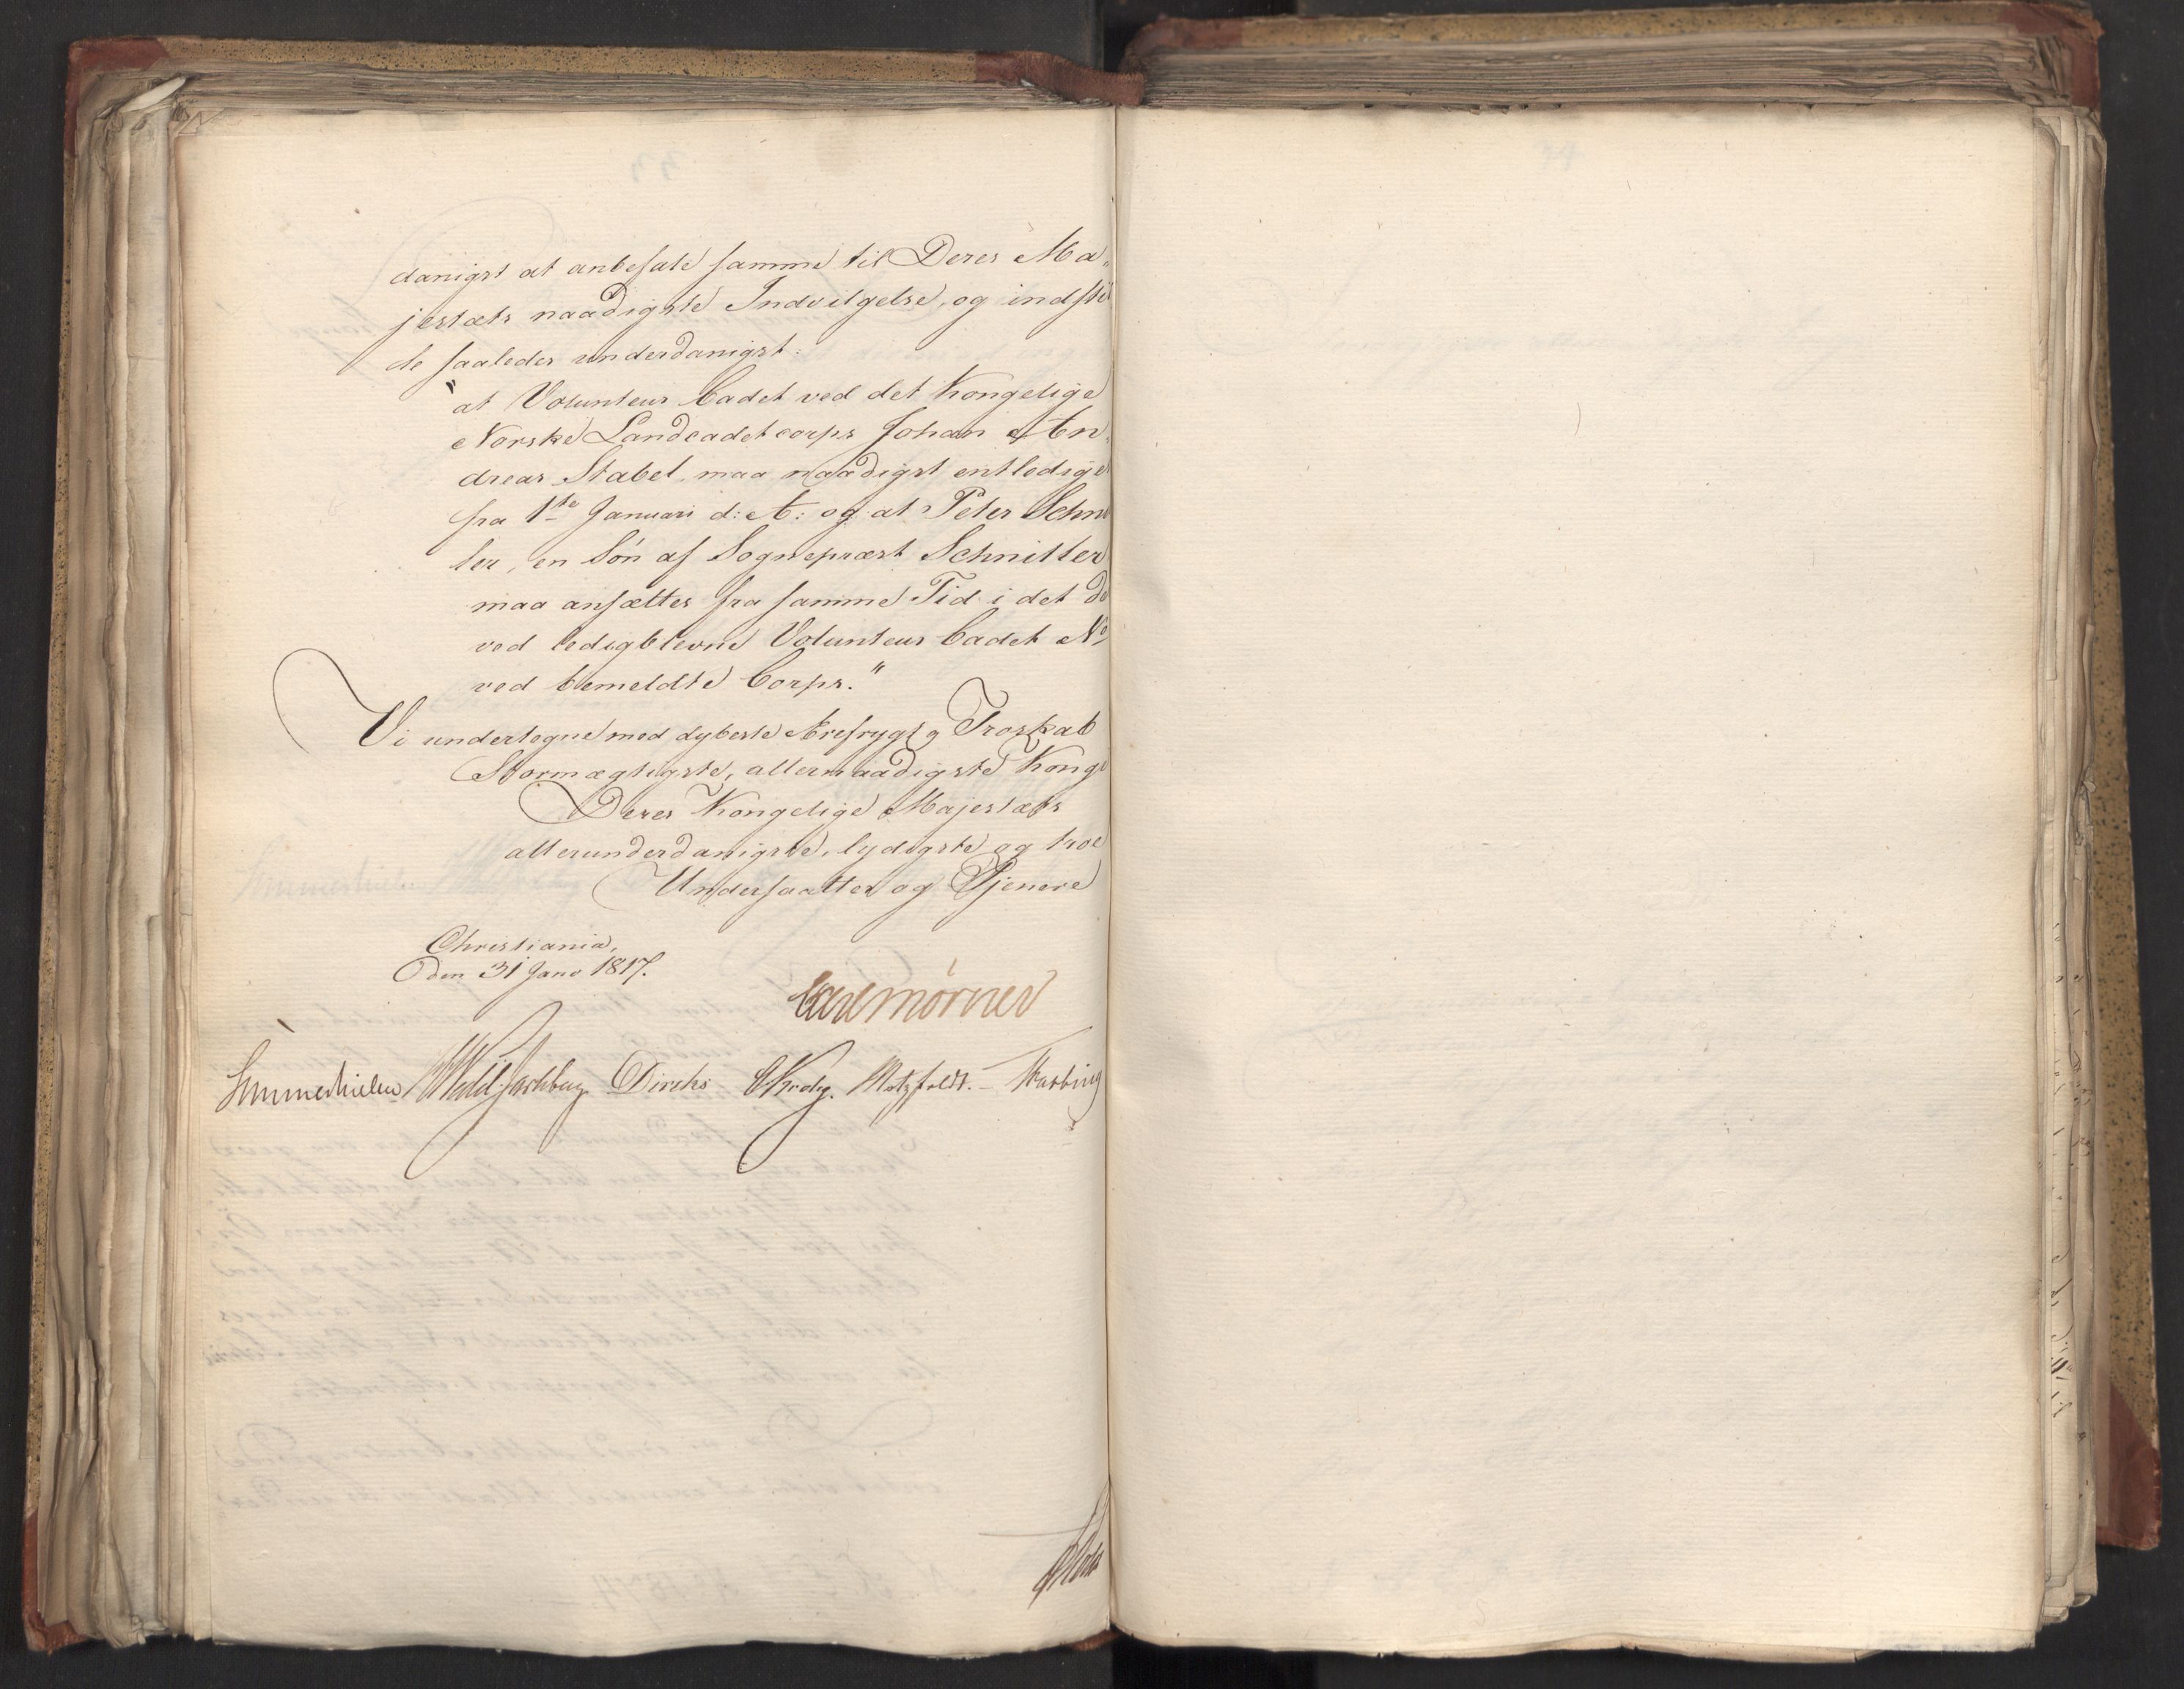 danigst at anbefale samme til Deres Ma„
jestæts naadigste Indvilgelse, og indstil
le saaledes underdanigst:
"at Volunteur Cadet ved det Kongelige
Norske Landcadetcorps Johan An„
dreas Stabel, maa naadigst entlediges
fra 1ste Januari d: A: og at Peter Schnit
ler, en Søn af Sognepræst Schnitler
maa ansættes fra samme Tid i det de
ved ledigblevne Volunteur Cadet No
ved bemeldte Corps."
Vi undertegne med dybeste Ærefrygt og Troskab
Stormægtigste, allernaadigste Konge
Deres Kongelige Majestæts
allerunderdanigste, lydigste og troe
Undersaatter og Tjenere
Christiania,
den 31 Janv 1817.
Carl Mörner
Sommerhielm WedelJarlsberg Diriks CKrohg. Motzfeldt.